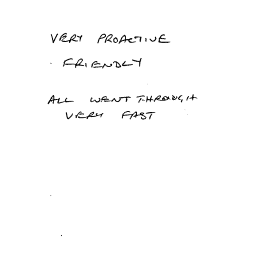 VERY PROACTIVE
. FRIENDLY
ALL WENT THROUGH
VERY FAST